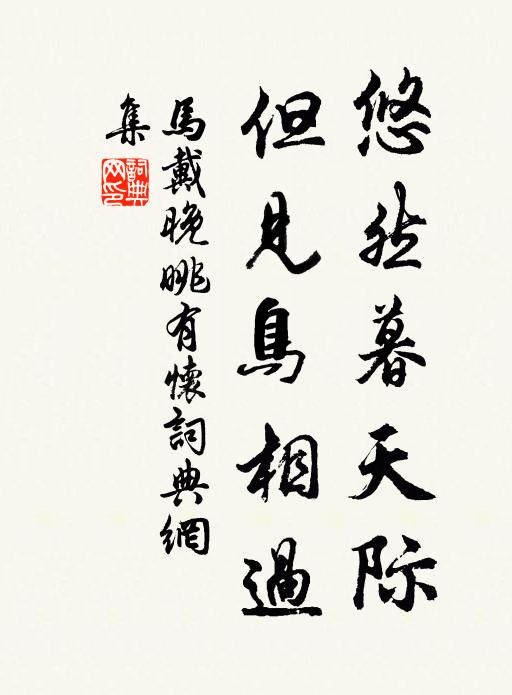 悠然暮天际
但見鳥相過
馬戴晚眺有懷詞典網
集
詞典
网印